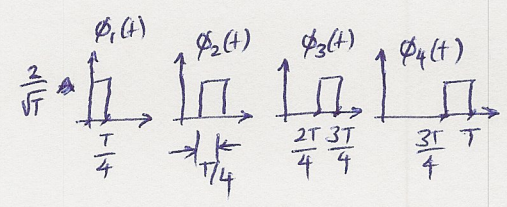 ϕ₁(t) ϕ₂(t) ϕ₃(t) ϕ₄(t)
2/√T
T/4 T/4 2T/4 3T/4 3T/4 T